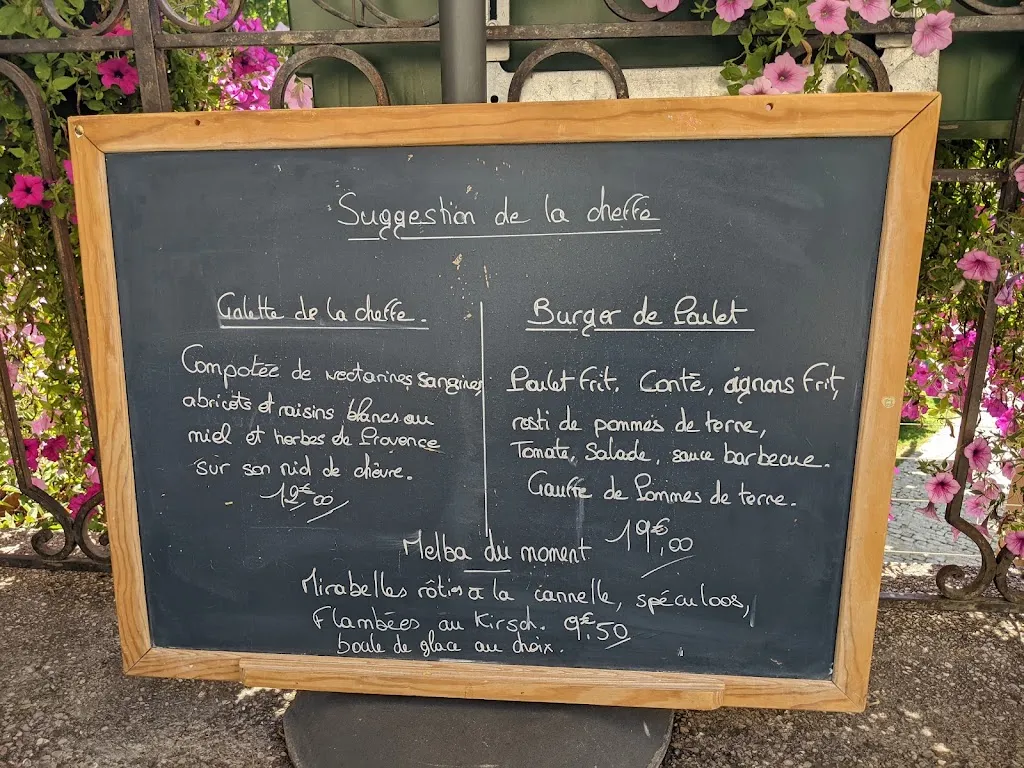 Suggestion de la cheffe
Galette de la cheffe.
Compotée de nectarines sanguines,
abricots et raisins blancs au
miel et herbes de Provence
sur son nid de chèvre.
12€00
Burger de Poulet
Poulet frit. Conté, oignons frit,
rosti de pommes de terre,
Tomate, Salade, sauce barbecue.
Gauffre de Pommes de terre.
19€,00
Melba du moment
Mirabelles rôties à la cannelle, spéculoos,
Flambées au Kirsch. 9€.50
boule de glace au choix.